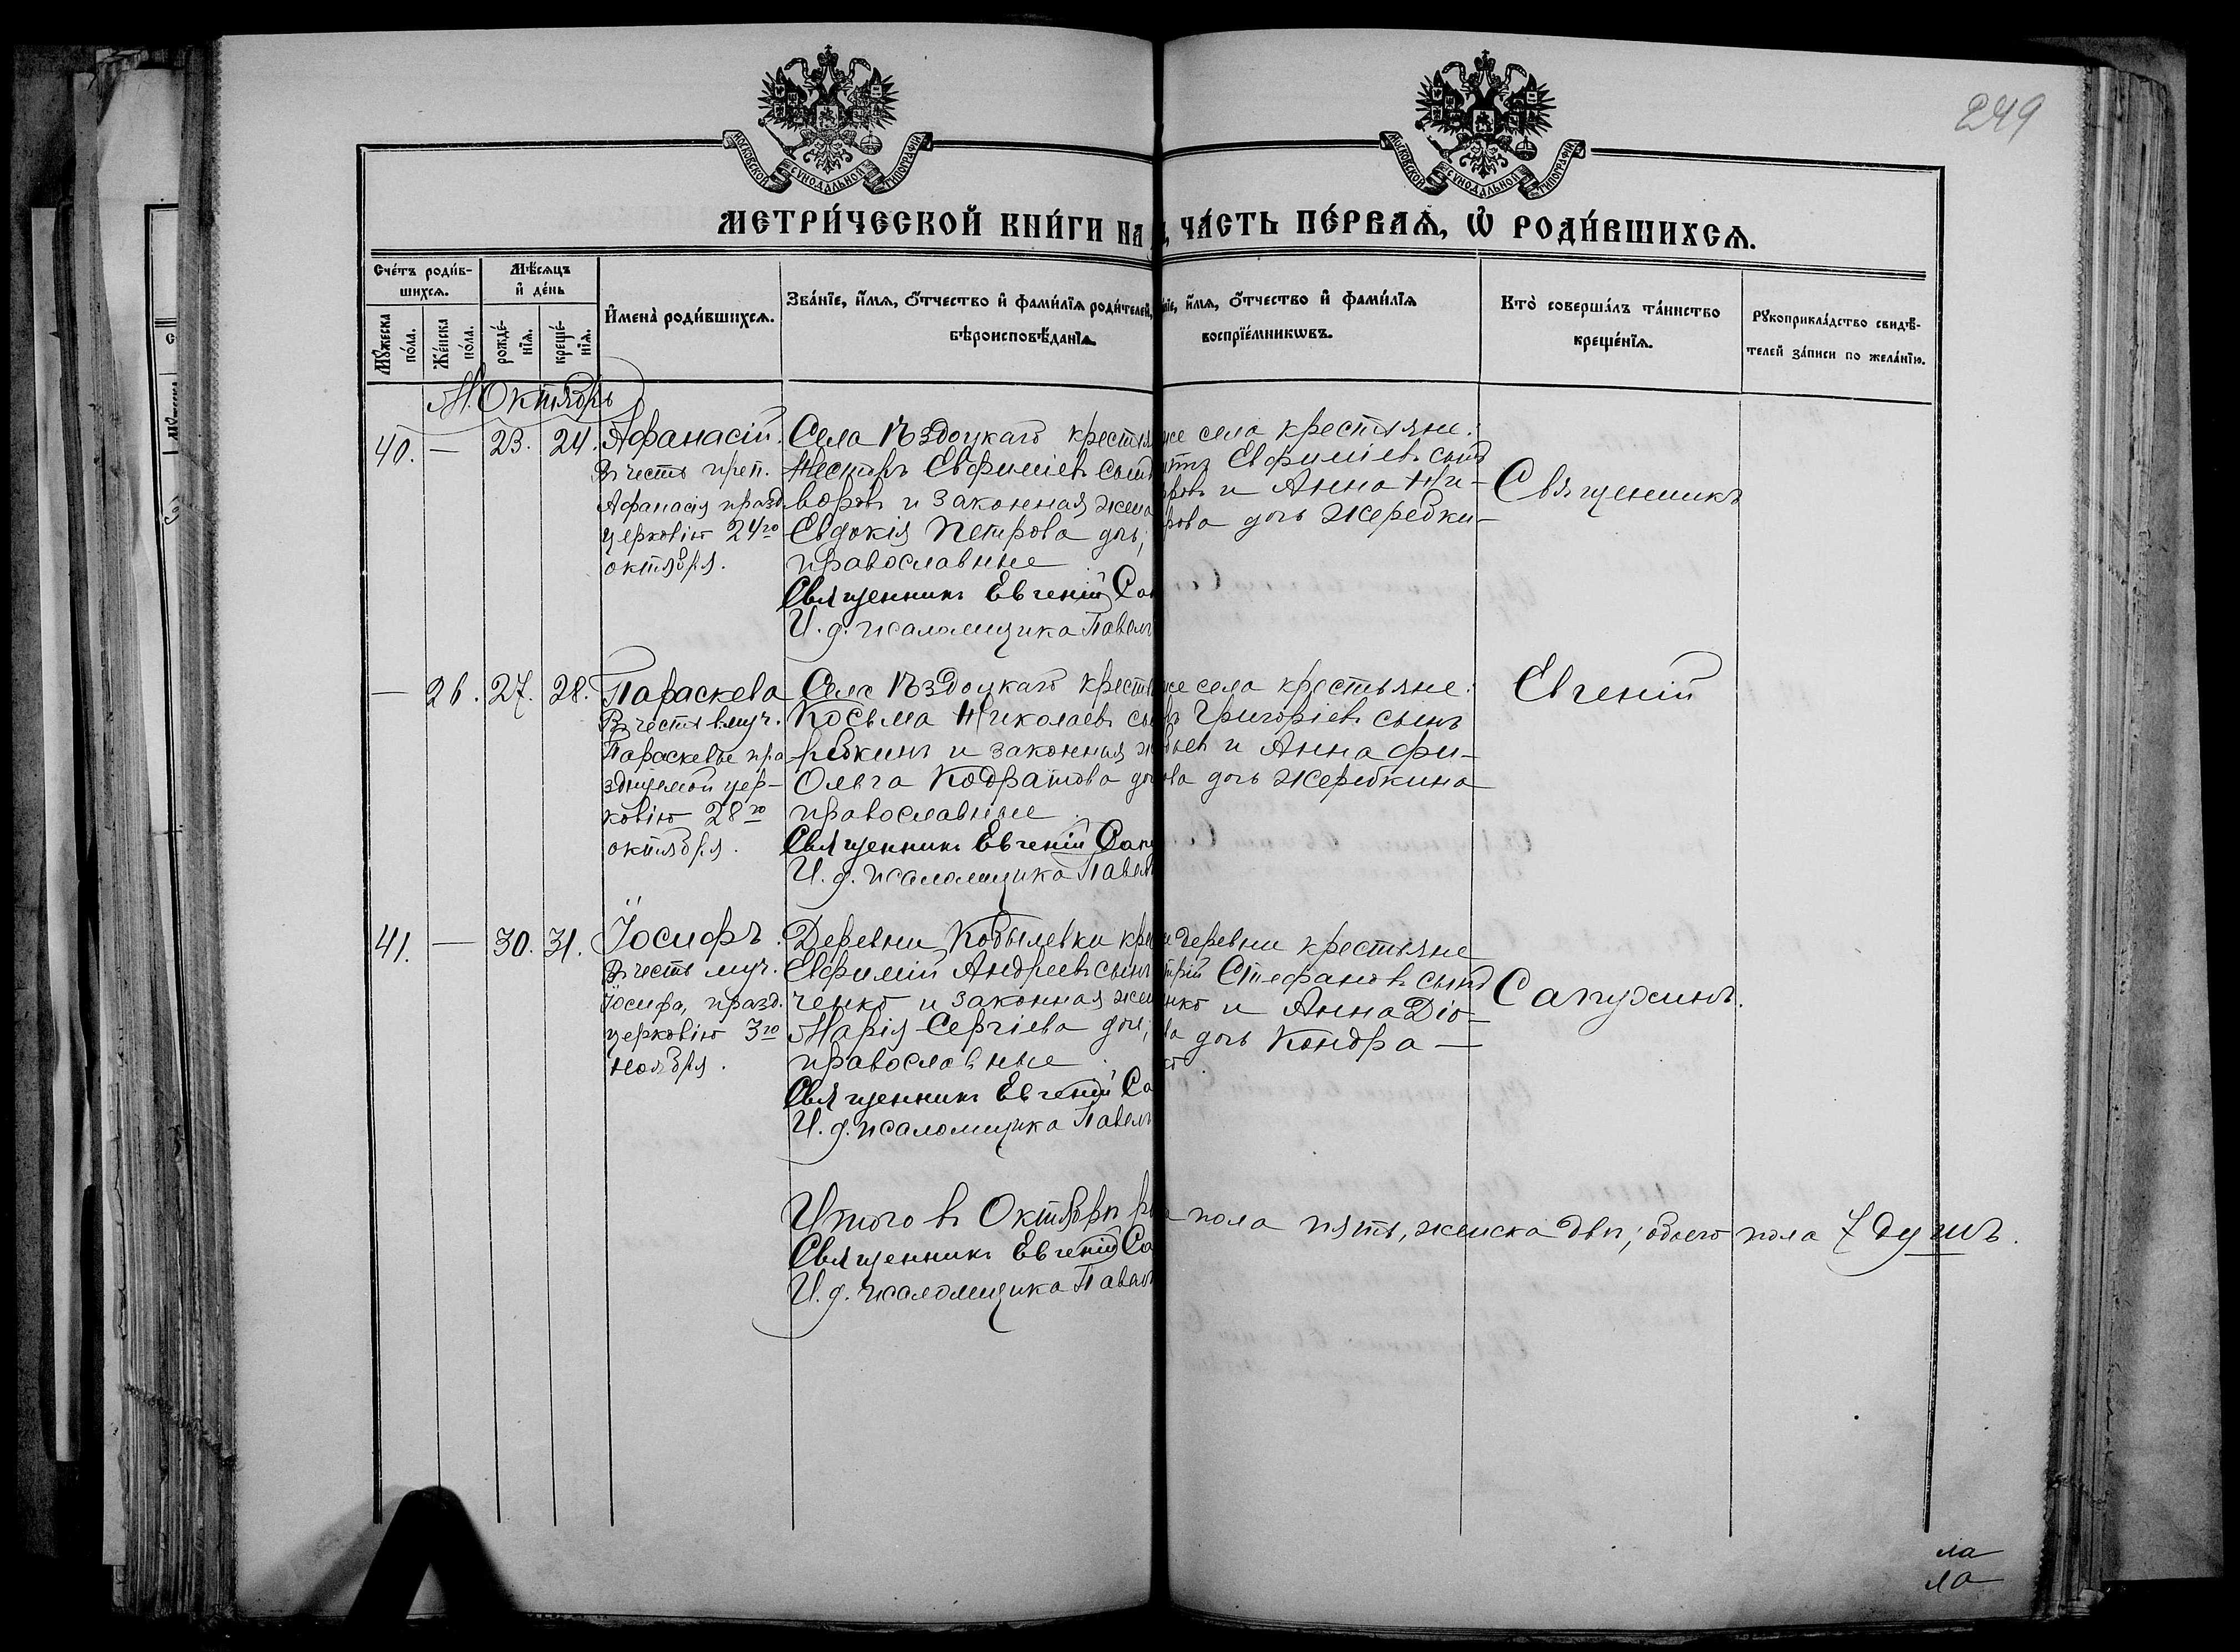 249
МОСКОВСКОЙ СѴНОДАЛЬНОЙ ТИПОГРАФІИ
МОСКОВСКОЙ СѴНОДАЛЬНОЙ ТИПОГРАФІИ
МЕТРИ́ЧЕСКОЙ КНИ́ГИ НА
ЧА́СТЬ ПЕ́РВАѦ, Ѽ РОДИ́ВШИХСѦ.
Сче́тъ роди́в-
шихсѧ.
Мꙋ́жеска по́ла.
Же́нска по́ла.
Мѣ́сѧцъ
и҆ де́нь
рожде́-
нїѧ.
креще́-
нїѧ.
И҆мена̀ роди́вшихсѧ.
Зва́нїе, и҆́мѧ, ѻ҆́тчество и҆ фами́лїѧ роди́телей,
вѣроисповѣ́данїѧ.
нїе, и҆́мѧ, ѻ҆́тчество и҆ фами́лїѧ
воспрїе́мникѡвъ.
Кто̀ соверша́лъ та́инство
креще́нїѧ.
Рꙋкоприкла́дство свидѣ́-
телей за́писи по жела́нїю.
М. Октябрь
40. — 23. 24. Афанасій.
Въ честь преп.
Афанасія празд.
церковію 24го
октября.
Села Ѣздоцкаго крестья
Несторъ Евфиміевъ сынъ
воровъ и законная жена
Евдокія Петрова дочь,
православные
Священникъ Евгеній Сап
И. д. псаломщика Павелъ
же села крестьяне:
Евфиміевъ сынъ
и Анна Ни-
рова дочь Жеребки-
Священникъ
— 26. 27. 28. Параскева
Въ честь вмуч.
Параскевы пра
зднуемой цер-
ковію 28го
октября.
Села Ѣздоцкаго кресть
Косьма Николаевъ сы
ребкинъ и законная ж
Ольга Кодратова до
православные
Священникъ Евгеній Сап
И. д. псаломщика Павелъ
же села крестьяне:
Григоріевъ сынъ
и Анна Фи-
ова дочь Жеребкина
Евгеній
41. — 30. 31. Іосифъ.
Въ честь муч.
Іосифа, празд.
церковію 3го
ноября.
Деревни Кобылевки кре
Евфимій Андреевъ сынъ
ченко и законная жен
Марія Сергіева дочь,
православные
Священникъ Евгеній Са
И. д. псаломщика Павелъ
деревни крестьяне
трій Стефановъ сынъ
нко и Анна Діо-
ва дочь Кондра-
Сапухинъ.
Итого въ Октябрѣ р
Священникъ Евгеній Са
И. д. псаломщика Павелъ
пола пять, женска двѣ; обоего пола 7 душъ.
ла
ла